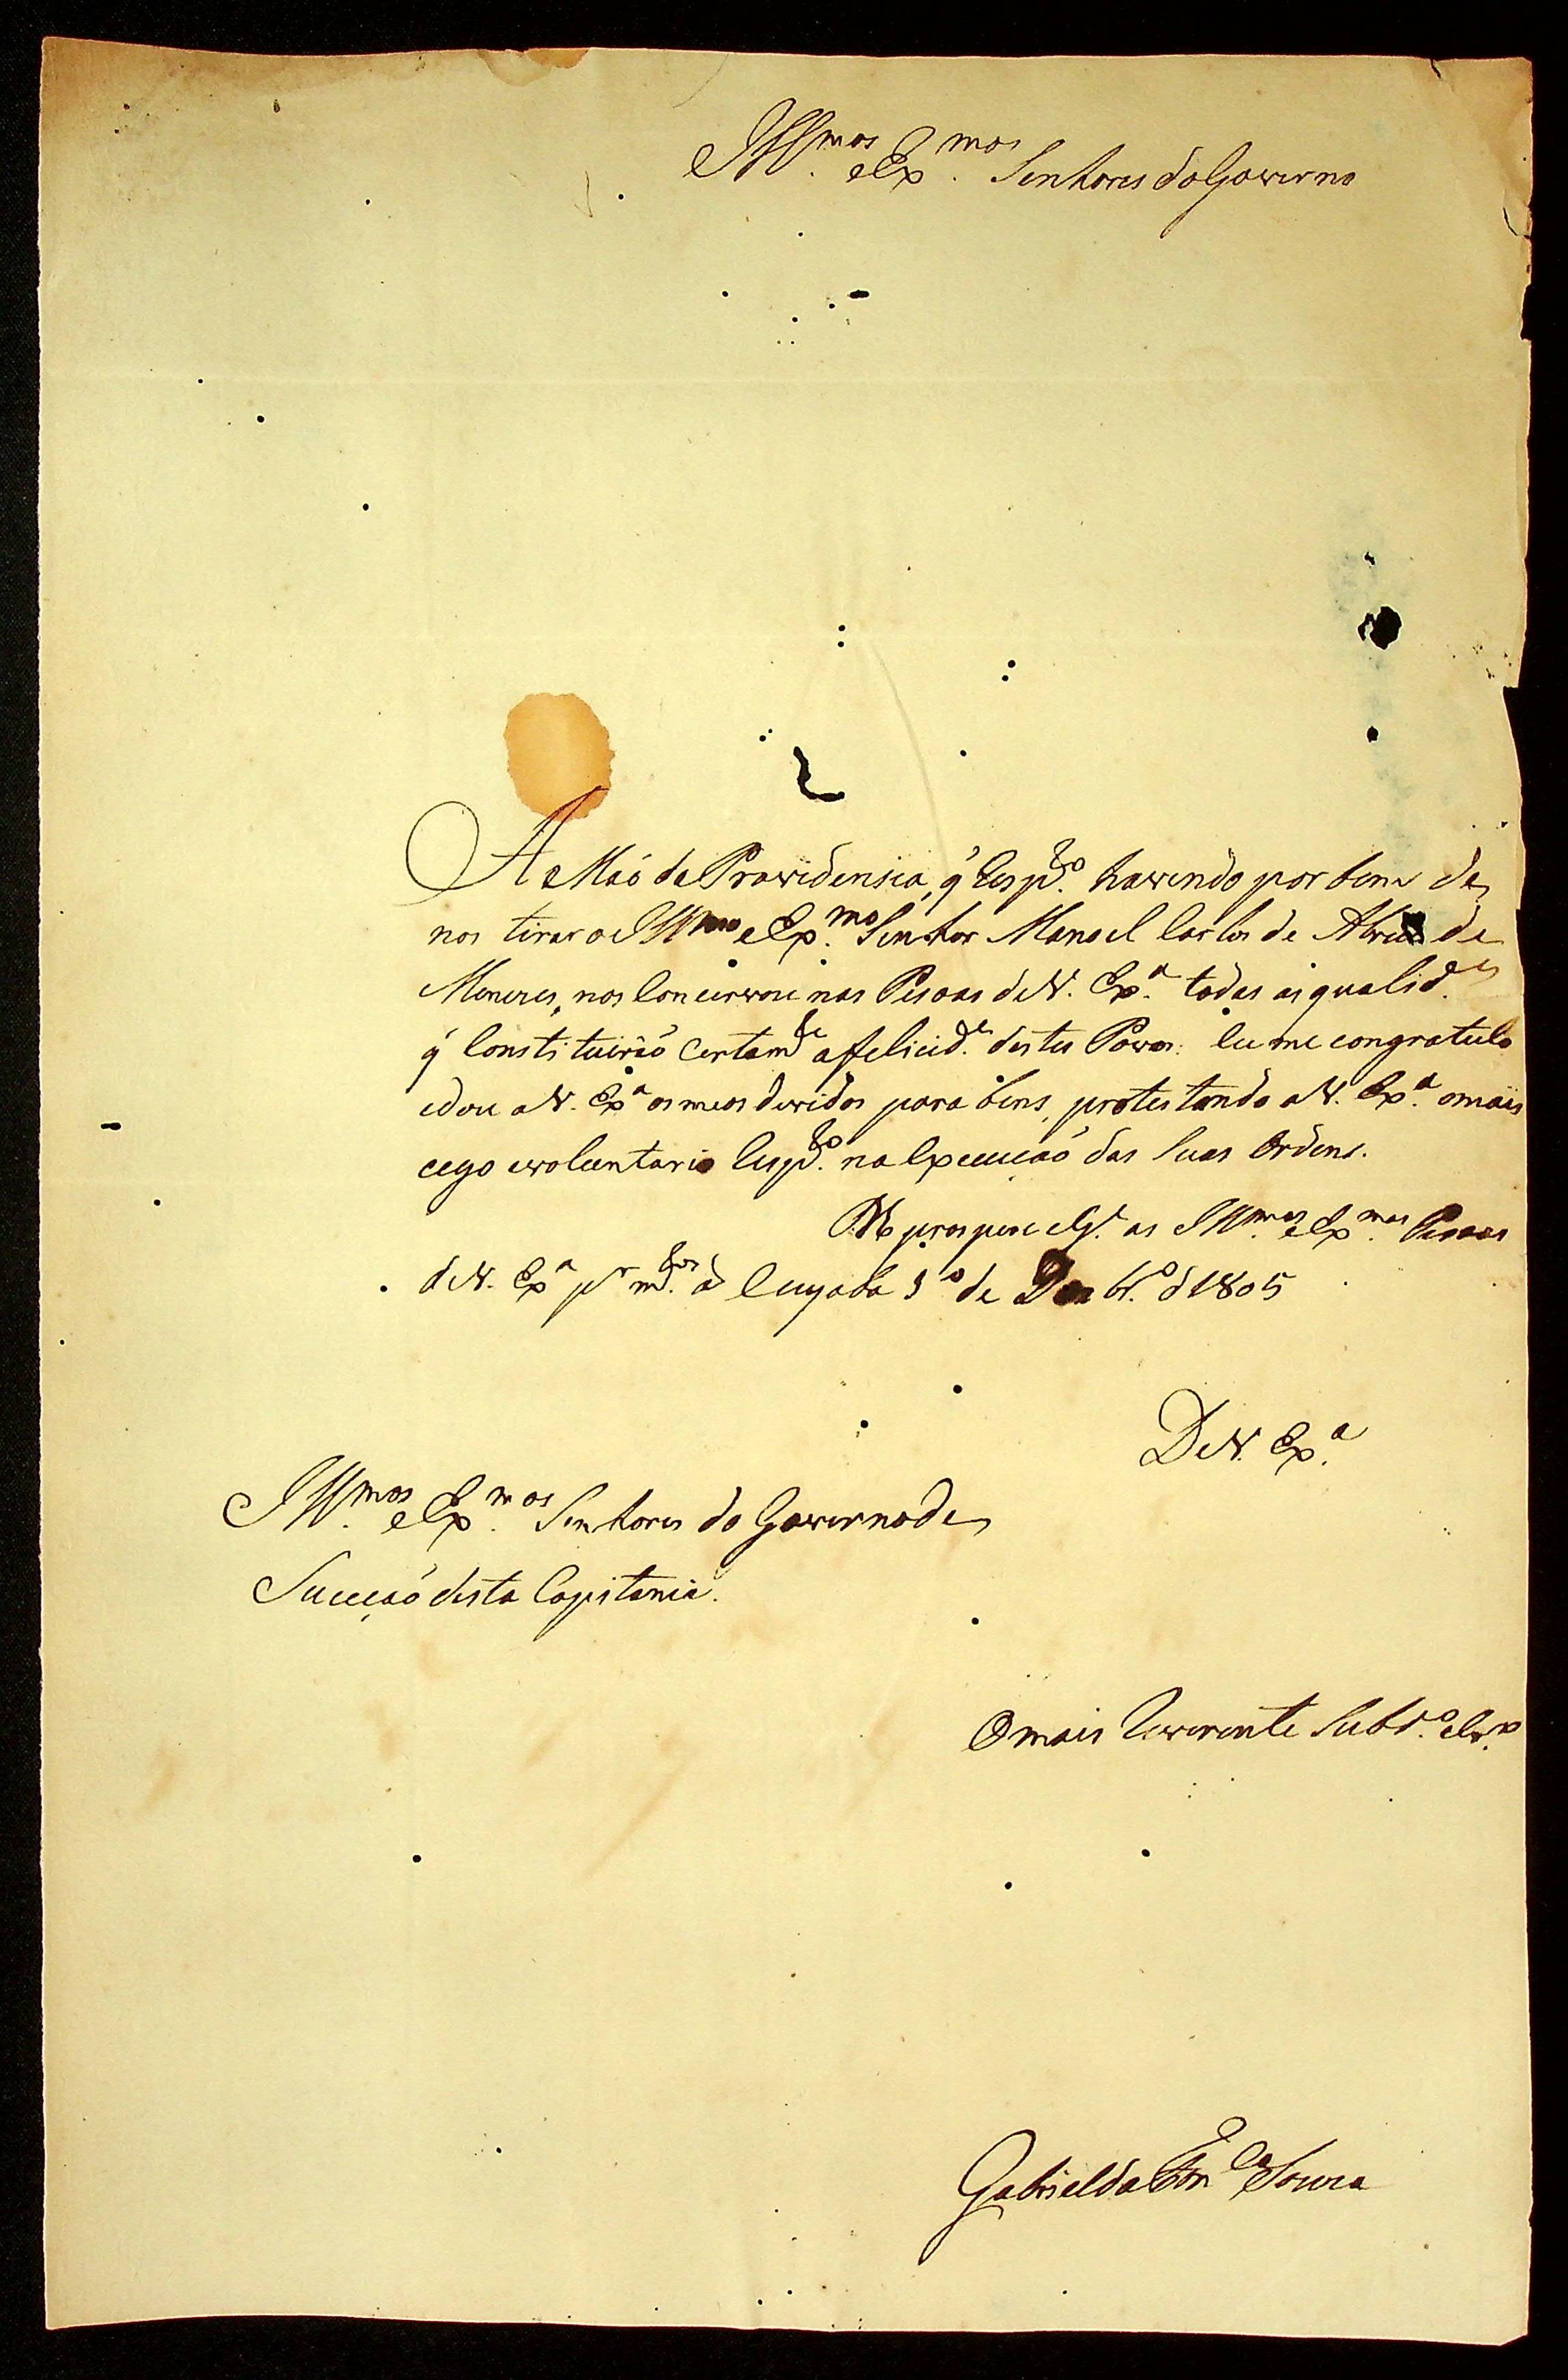 Ill.mos e Ex.mos Senhores do Governo
A Maõ da Providensia, q̃ Resp.do havendo por bem de
nos tirar o Ill.mo e Ex.mo Senhor Manoel Carlos de Abreu de
Menezes, nos Concervou nas Pesoas de V. Ex.a todas as qualid.es
q̃ Constituiraõ Certam.te a felicid.e destes Povos. Eu me congratulo
e dou a V. Ex.a os meos devidos parabens, protestando a V. Ex.a o mais
cego e voluntario Resp.to na Execuçaõ das Suas Ordens.
D.s prospere e G.e as Ill.mas e Ex.mas Pesoas
de V. Ex.a p.r m.tos a.s Cuyaba de Dezbr.o d 1805
De V. Ex.a
Ill.mos e Ex.mos Senhores do Governo de
Suceçaõ desta Capitania.
O mais Reverente Subd.o e Cr.o
Gabriel da Fon.ca e Souza